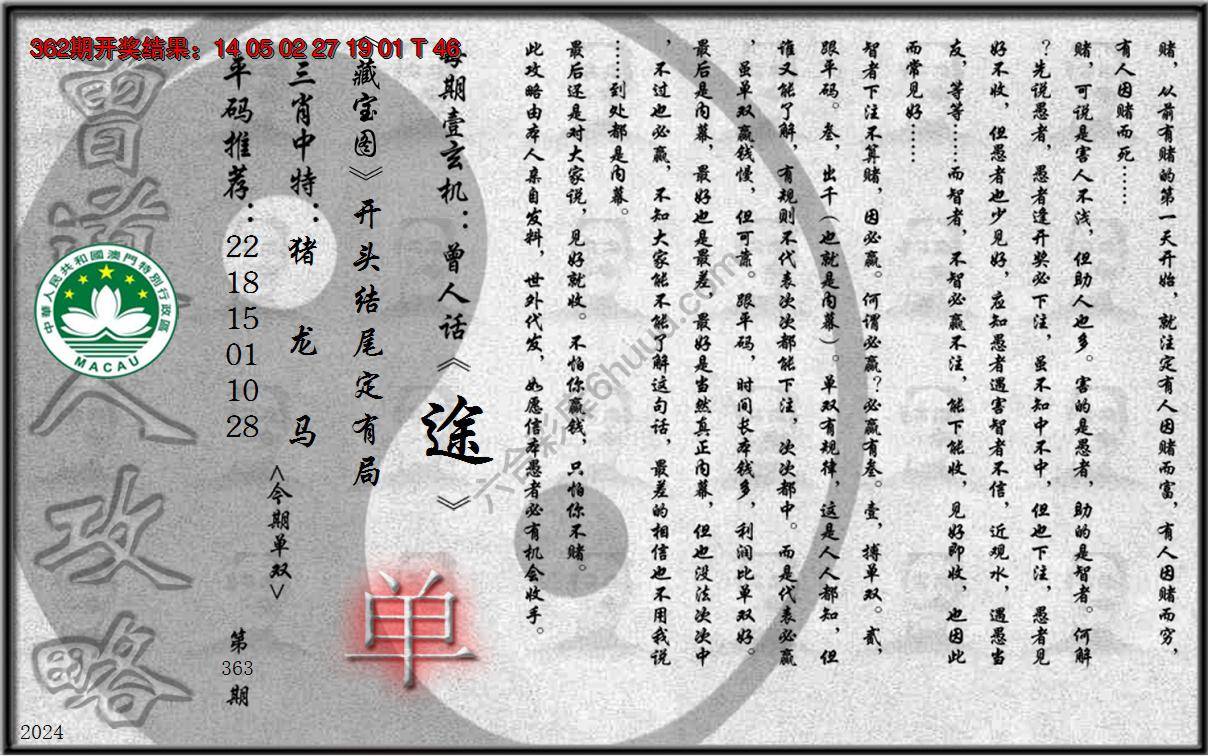 362期开奖结果：14 05 02 27 19 01 T 46
赌，从前有赌的第一天开始，就注定有人因赌而富，有人因赌而穷，
有人因赌而死……
赌，可说是害人不浅，但助人也多。害的是愚者，助的是智者。何解
？先说愚者，愚者逢开奖必下注，虽不知中不中，但也下注，愚者见
好不收，但愚者也少见好，应知愚者遇害智者不信，近观水，遇愚当
友，等等……而智者，不智必赢不注，能下能收，见好即收，也因此
而常见好……
智者下注不算赌，因必赢。何谓必赢？必赢有叁。壹，搏单双。贰，
跟平码。叁，出千（也就是内幕）。单双有规律，这是人人都知，但
谁又能了解，有规则不代表次次都能下注，次次都中。而是代表必赢
，虽单双赢钱慢，但可靠。跟平码，时间长本钱多，利润比单双好。
最后是内幕，最好也是最差，最好是当然真正内幕，但也没法次次中
，不过也必赢，不知大家能不能了解这句话，最差的相信也不用我说
……到处都是内幕。
最后还是对大家说，见好就收。不怕你赢钱，只怕你不赌。
此攻略由本人亲自发料，世外代发，如愿信本愚者必有机会收手。
每期壹玄机：曾人话《途》
《藏宝图》开头结尾定有局
三肖中特：猪 龙 马
<今期单双>
单
平码推荐：22 18 15 01 10 28
第363期
曾道人攻略
中華人民共和國澳門特別行政區
MACAU
2024
六合彩库6huuu.com